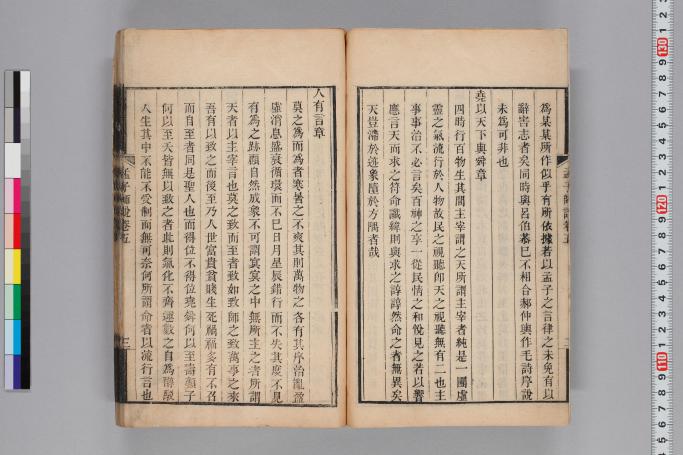 為某某所作似乎有所依據若以孟子之言律之未免有以
辭害志者矣同時與呂伯恭已不相合郝仲輿作毛詩序說
未為可非也
堯以天下與舜章
四時行百物生其間主宰謂之天所謂主宰者純是一團虛
靈之氣流行於人物故民之視聽即天之視聽無有二也主
事事治不必言矣百神之享一從民情之和悅見之若以響
應言天而求之符命讖緯則與求之諄諄然命之者無異矣
天豈滯於迹象墮於方隅者哉
人有言章
莫之為而為者寒暑之不爽其則萬物之各有其序治亂盈
虛消息盛衰循環而不已日月星辰錯行而不失其度不見
有為之跡顧自然成象不可謂冥冥之中無所主之者所謂
天者以主宰言也莫之致而至者致如致師之致萬事之來
吾有以致之而後至乃人世富貴貧賤生死禍福多有不召
而自至者同是聖人也而得位不得位堯舜何以至壽顏子
何以至夭皆無以致之者此則氣化不齊運數之自為醇駁
人生其中不能不受制而無可奈何所謂命者以流行言也
孟子師說卷五
三